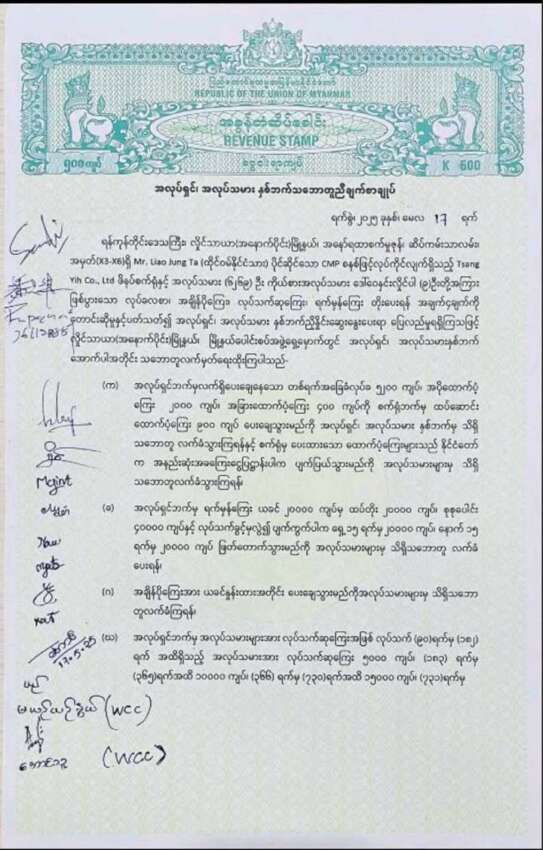 ပြည်ထောင်စုသမ္မတမြန်မာနိုင်ငံတော်
REPUBLIC OF THE UNION OF MYANMAR
အခွန်တံဆိပ်ခေါင်း
REVENUE STAMP
၅၀၀ကျပ်
K 500
အလုပ်ရှင်၊ အလုပ်သမား နှစ်ဘက်သဘောတူညီချက်စာချုပ်
ရက်စွဲ၊ ၂၀၂၅ ခုနှစ်၊ မေလ 17 ရက်
ရန်ကုန်တိုင်းဒေသကြီး၊ လှိုင်သာယာ(အနောက်ပိုင်း)မြို့နယ်၊ အနော်ရထာစက်မှုဇုန်၊ ဆိပ်ကမ်းသာလမ်း၊
အမှတ်(X3-X6)ရှိ Mr. Liao Jung Ta (ထိုင်ဝမ်နိုင်ငံသား) ပိုင်ဆိုင်သော CMP စနစ်ဖြင့်လုပ်ကိုင်လျက်ရှိသည့် Tsang
Yih Co., Ltd ဖိနပ်စက်ရုံနှင့် အလုပ်သမား (၆၂၆၉) ဦး ကိုယ်စားအလုပ်သမား ဒေါ်ဝေနှင်းလှိုင်ပါ (၉)ဦးတို့အကြား
ဖြစ်ပွားသော လုပ်ခလစာ၊ အချိန်ပိုကြေး၊ လုပ်သက်ဆုကြေး၊ ရက်မှန်ကြေး တိုးပေးရန် အချက်၄ချက်ကို
တောင်းဆိုမှုနှင့်ပတ်သတ်၍ အလုပ်ရှင်၊ အလုပ်သမား နှစ်ဘက်ညှိနှိုင်းဆွေးနွေးပေးရာ ပြေလည်မှုရရှိကြသဖြင့်
လှိုင်သာယာ(အနောက်ပိုင်း)မြို့နယ်၊ မြို့နယ်ပေါင်းစပ်အဖွဲ့ရှေ့မှောက်တွင် အလုပ်ရှင်၊ အလုပ်သမားနှစ်ဘက်
အောက်ပါအတိုင်း သဘောတူလက်မှတ်ရေးထိုးကြပါသည်-
(က) အလုပ်ရှင်ဘက်မှလက်ရှိပေးချေနေသော တစ်ရက်အခြေခံလုပ်ခ ၅၂၀၀ ကျပ်၊ အပိုထောက်ပံ့
ကြေး ၂၀၀၀ ကျပ်၊ အခြားထောက်ပံ့ကြေး ၄၀၀ ကျပ်ကို စက်ရုံဘက်မှ ထပ်ဆောင်း
ထောက်ပံ့ကြေး ၉၀၀ ကျပ် ပေးချေသွားမည်ကို အလုပ်ရှင်၊ အလုပ်သမား နှစ်ဘက်မှ သိရှိ
သဘောတူ လက်ခံသွားကြရန်နှင့် စက်ရုံမှ ပေးထားသော ထောက်ပံ့ကြေးများသည် နိုင်ငံတော်
က အနည်းဆုံးအခကြေးငွေပြဋ္ဌာန်းပါက ပျက်ပြယ်သွားမည်ကို အလုပ်သမားများမှ သိရှိ
သဘောတူလက်ခံသွားကြရန်၊
(ခ) အလုပ်ရှင်ဘက်မှ ရက်မှန်ကြေး ယခင် ၂၀၀၀၀ ကျပ်မှ ထပ်တိုး ၂၀၀၀၀ ကျပ်၊ စုစုပေါင်း
၄၀၀၀၀ ကျပ်နှင့် လုပ်သက်ခွင့်မှလွဲ၍ ပျက်ကွက်ပါက ရှေ့ ၁၅ ရက်မှ ၂၀၀၀၀ ကျပ်၊ နောက် ၁၅
ရက်မှ ၂၀၀၀၀ ကျပ် ဖြတ်တောက်သွားမည်ကို အလုပ်သမားများမှ သိရှိသဘောတူ လက်ခံ
ပေးရန်၊
(ဂ) အချိန်ပိုကြေးအား ယခင်နှုန်းထားအတိုင်း ပေးချေသွားမည်ကိုအလုပ်သမားများမှ သိရှိသဘော
တူလက်ခံကြရန်၊
(ဃ) အလုပ်ရှင်ဘက်မှ အလုပ်သမားများအား လုပ်သက်ဆုကြေးအဖြစ် လုပ်သက် (၉၀)ရက်မှ (၁၈၂)
ရက် အထိရှိသည့် အလုပ်သမားအား လုပ်သက်ဆုကြေး ၅၀၀၀ ကျပ်၊ (၁၈၃) ရက်မှ
(၃၆၅)ရက်အထိ ၁၀၀၀၀ ကျပ်၊ (၃၆၆) ရက်မှ (၇၃၀)ရက်အထိ ၁၅၀၀၀ ကျပ်၊ (၇၃၁)ရက်မှ
17.5.25
(WCC)
(WCC)